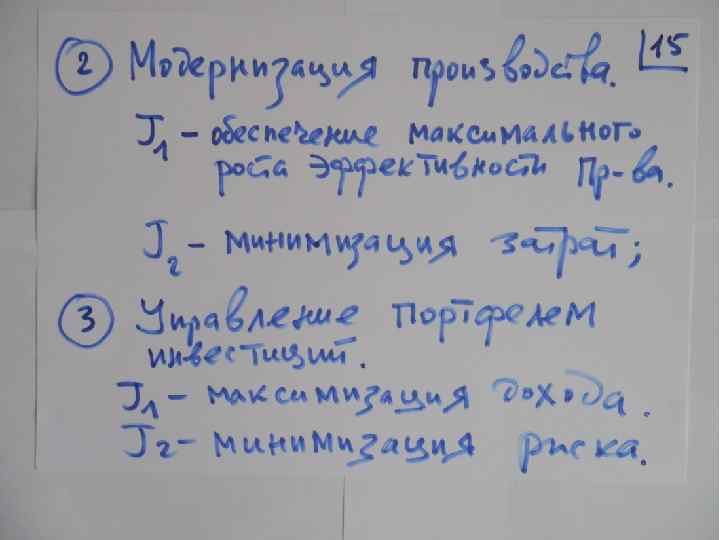 ② Модернизация производства. 15
J₁ – обеспечение максимального
роста эффективности Пр-ва.
J₂ – минимизация затрат;
③ Управление портфелем
инвестиций.
J₁ – максимизация дохода.
J₂ – минимизация риска.